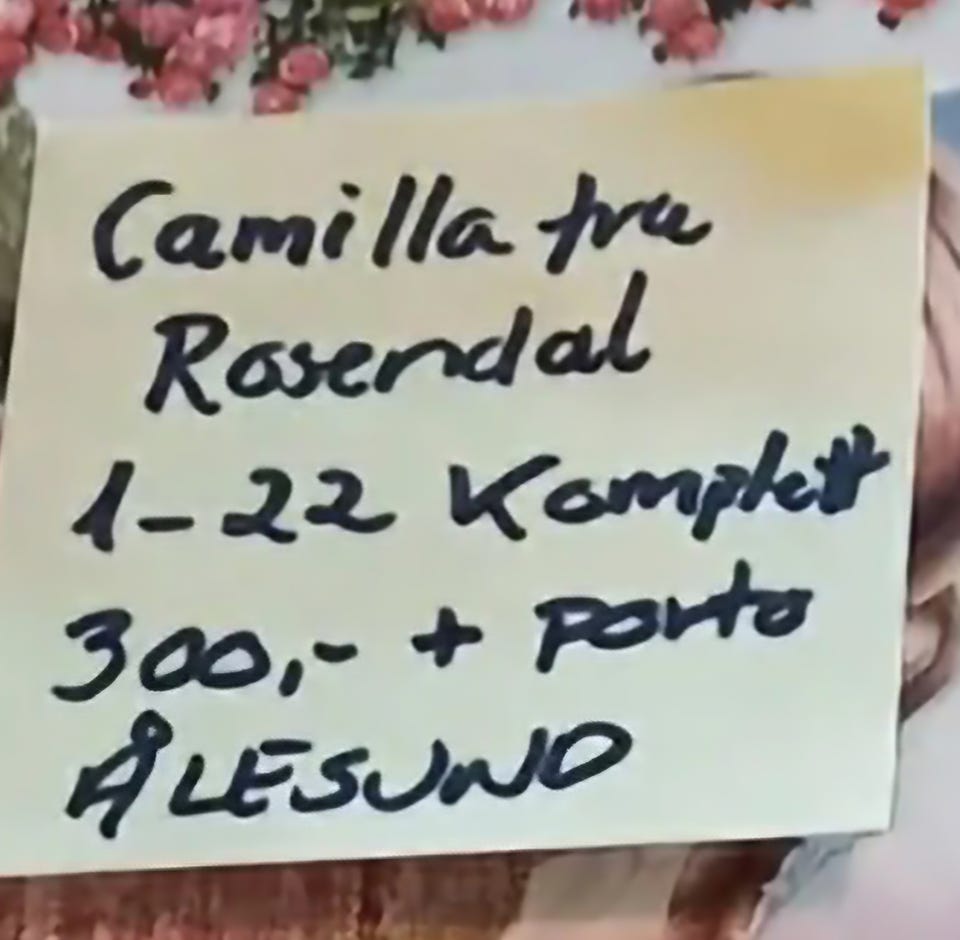 Camilla fra
Rosendal
1-22 Komplett
300,- + Porto
ÅLESUND